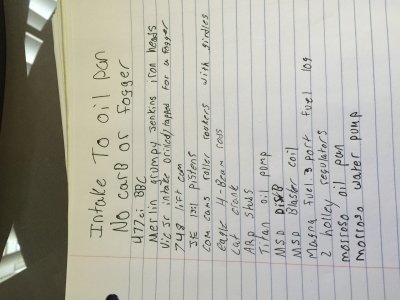 Intake To oil pan
No carb or fogger
477ci BBC
Merlin grumpy Jenkins iron heads
Vic Jr intake drilled/tapped for a fogger
748 lift cam
JE 13:1 pistons
Com cams roller rockers with girdles
Eagle H-Beam rods
Cat crank
ARP studs
Titan oil pump
MSD Dist
MSD Blaster coil
Magna fuel 3 port fuel log
2 holley regulators
morroso oil pan
morroso water pump